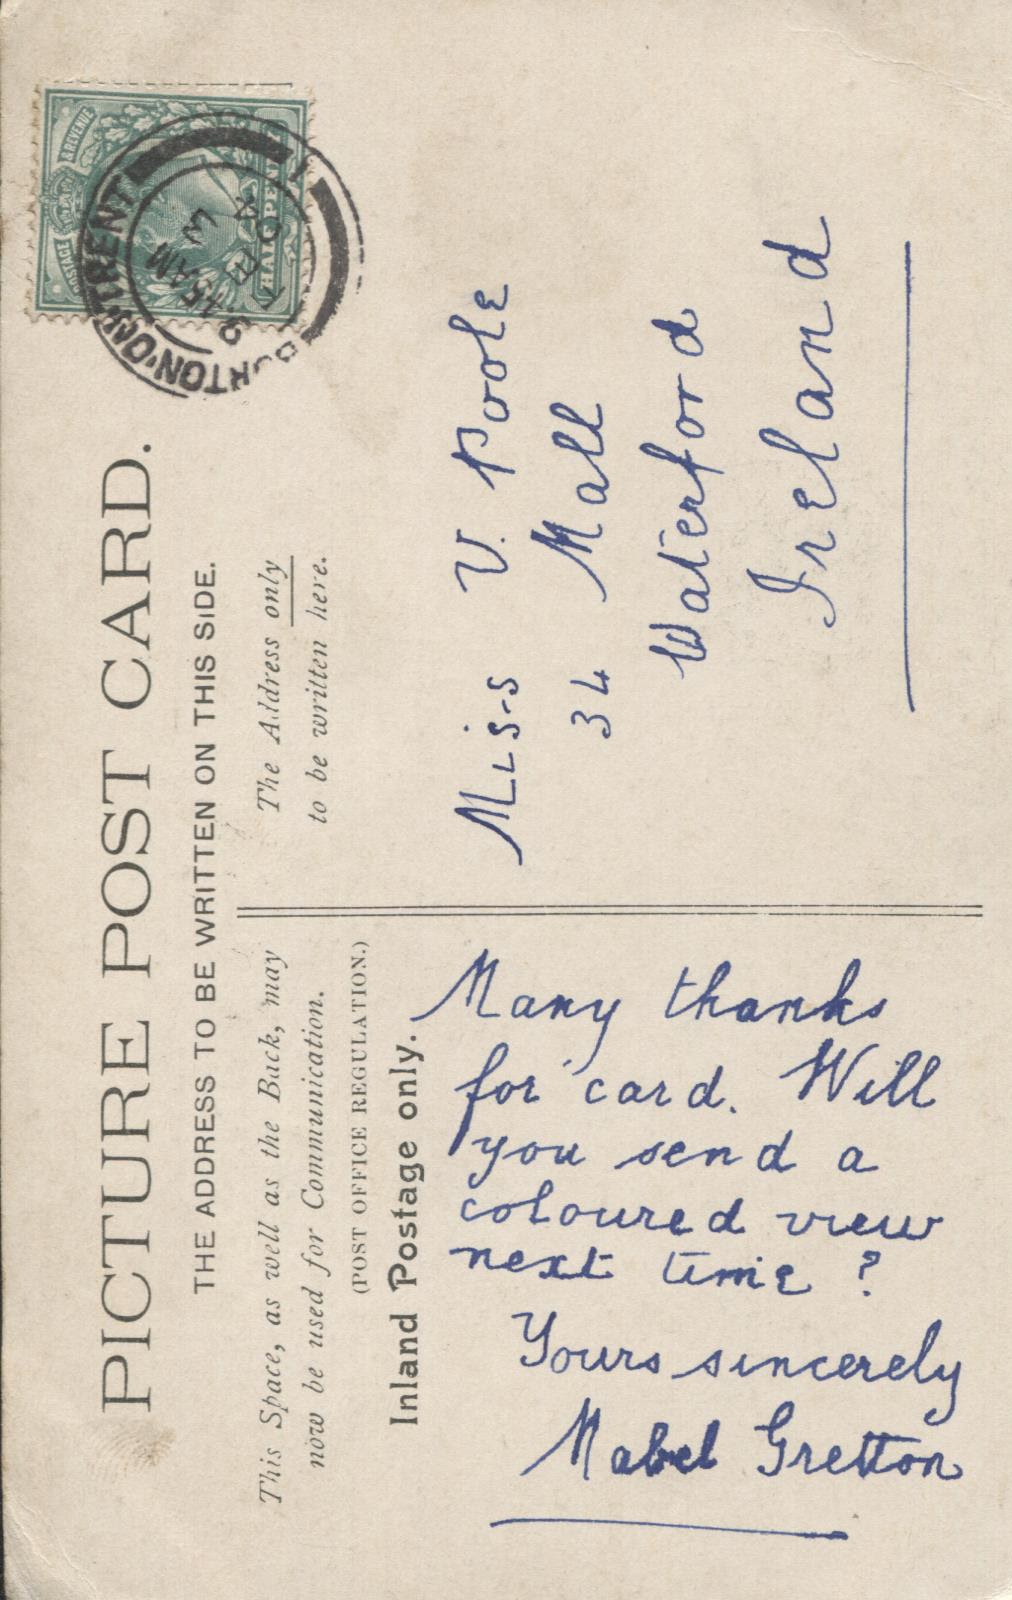 PICTURE POST CARD.
THE ADDRESS TO BE WRITTEN ON THIS SIDE.
This Space, as well as the Back, may
now be used for Communication.
(POST OFFICE REGULATION.)
Inland Postage only.
The Address only
to be written here.
Many thanks
for card. Will
you send a
coloured view
next time?
Yours sincerely
Mabel Gretton
Miss V. Poole
34 Mall
Waterford
Ireland
POSTAGE & REVENUE
HALFPENNY
BURTON-ON-TRENT
9.15AM
FE 3
04